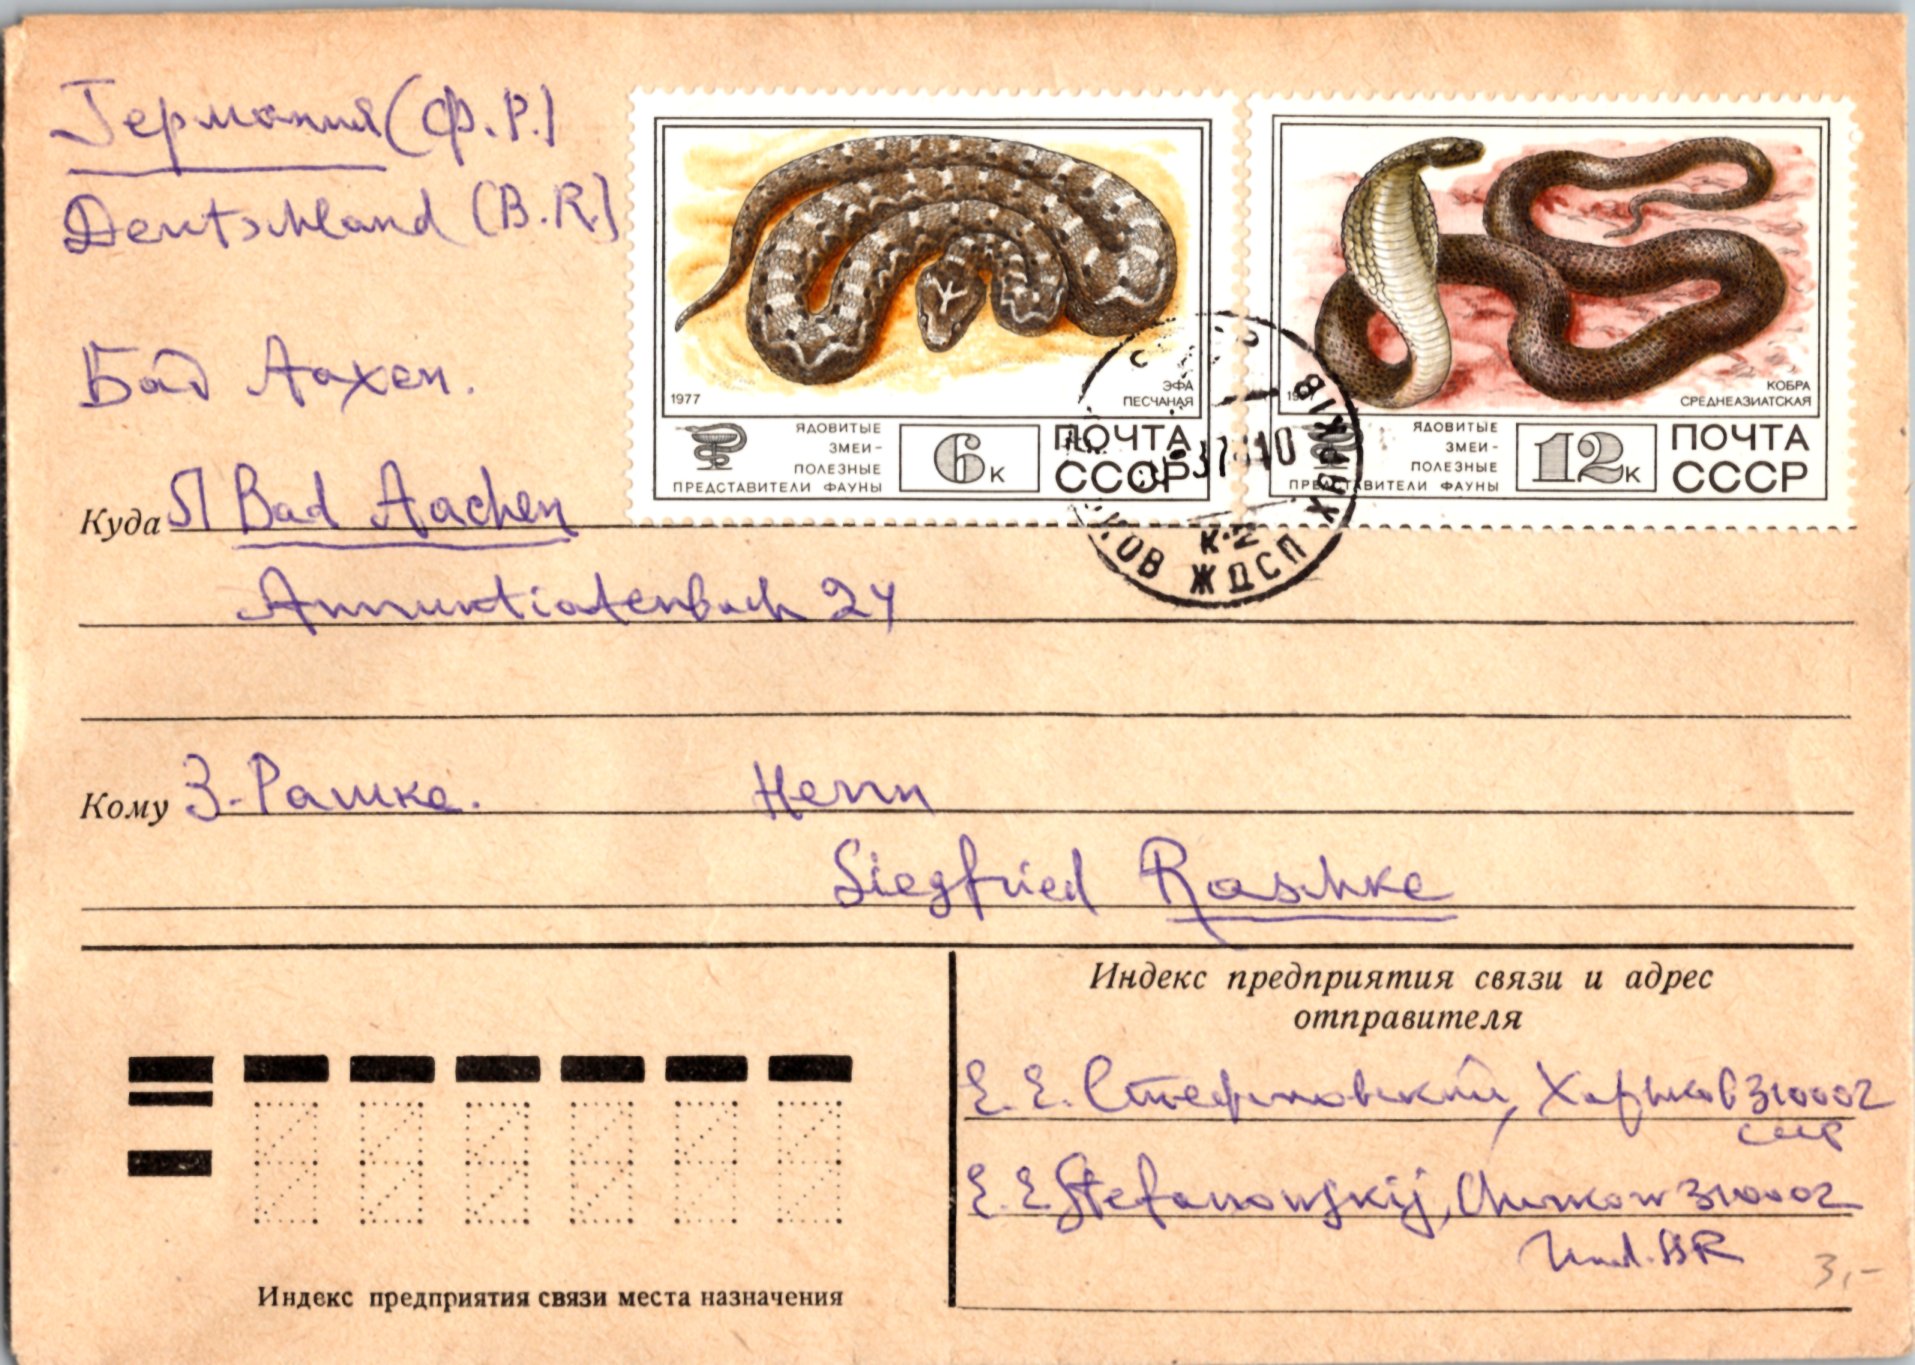 Германия (Ф.Р.)
Deutschland (B.R.)
Бад Аахен.
1977
ЭФА
ПЕСЧАНАЯ
ЯДОВИТЫЕ
ЗМЕИ-
ПОЛЕЗНЫЕ
ПРЕДСТАВИТЕЛИ ФАУНЫ
6 К
ПОЧТА
СССР
КОБРА
СРЕДНЕАЗИАТСКАЯ
ЯДОВИТЫЕ
ЗМЕИ-
ПОЛЕЗНЫЕ
ПРЕДСТАВИТЕЛИ ФАУНЫ
12 К
ПОЧТА
СССР
ЖДСП
ХАРКІВ
Куда 51 Bad Aachen
Annuntiatenbach 24
Кому З. Рашке. Herrn
Siegfried Raschke
Индекс предприятия связи и адрес
отправителя
Е. Е. Стефановский, Харьков 310002
СССР
E. E. Stefanowskij, Charkow 310002
UdSSR
3,-
Индекс предприятия связи места назначения